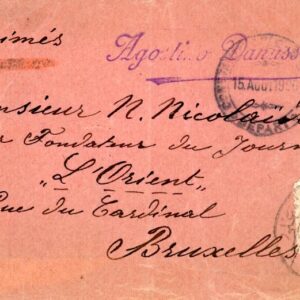 imés
Agostino Danuss
15.AOUT19
DEPART
onsieur N. Nicolaï
r Fondateur du Journ
"L'Orient"
Rue du Cardinal
Bruxelles